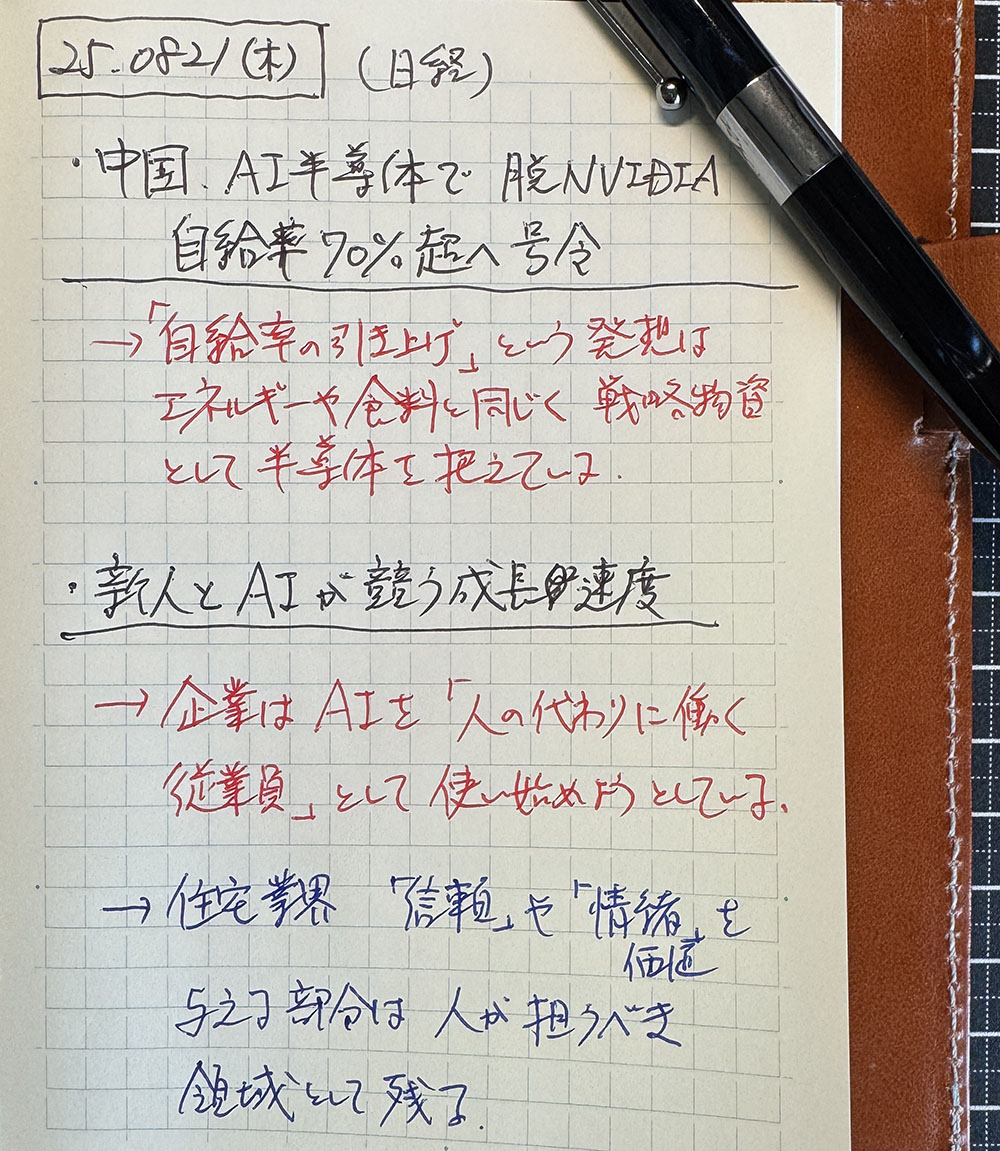 25.0821(木) (日経)
・中国、AI半導体で 脱NVIDIA
自給率70%超へ号令
→「自給率の引き上げ」という発想は
エネルギーや食料と同じく 戦略物資
として半導体を捉えている.
・新人とAIが競う成長速度
→企業はAIを「人の代わりに働く
従業員」として使い始めようとしている.
→住宅業界 「信頼」や「情緒」を
価値
与える部分は 人が担うべき
領域として残る.